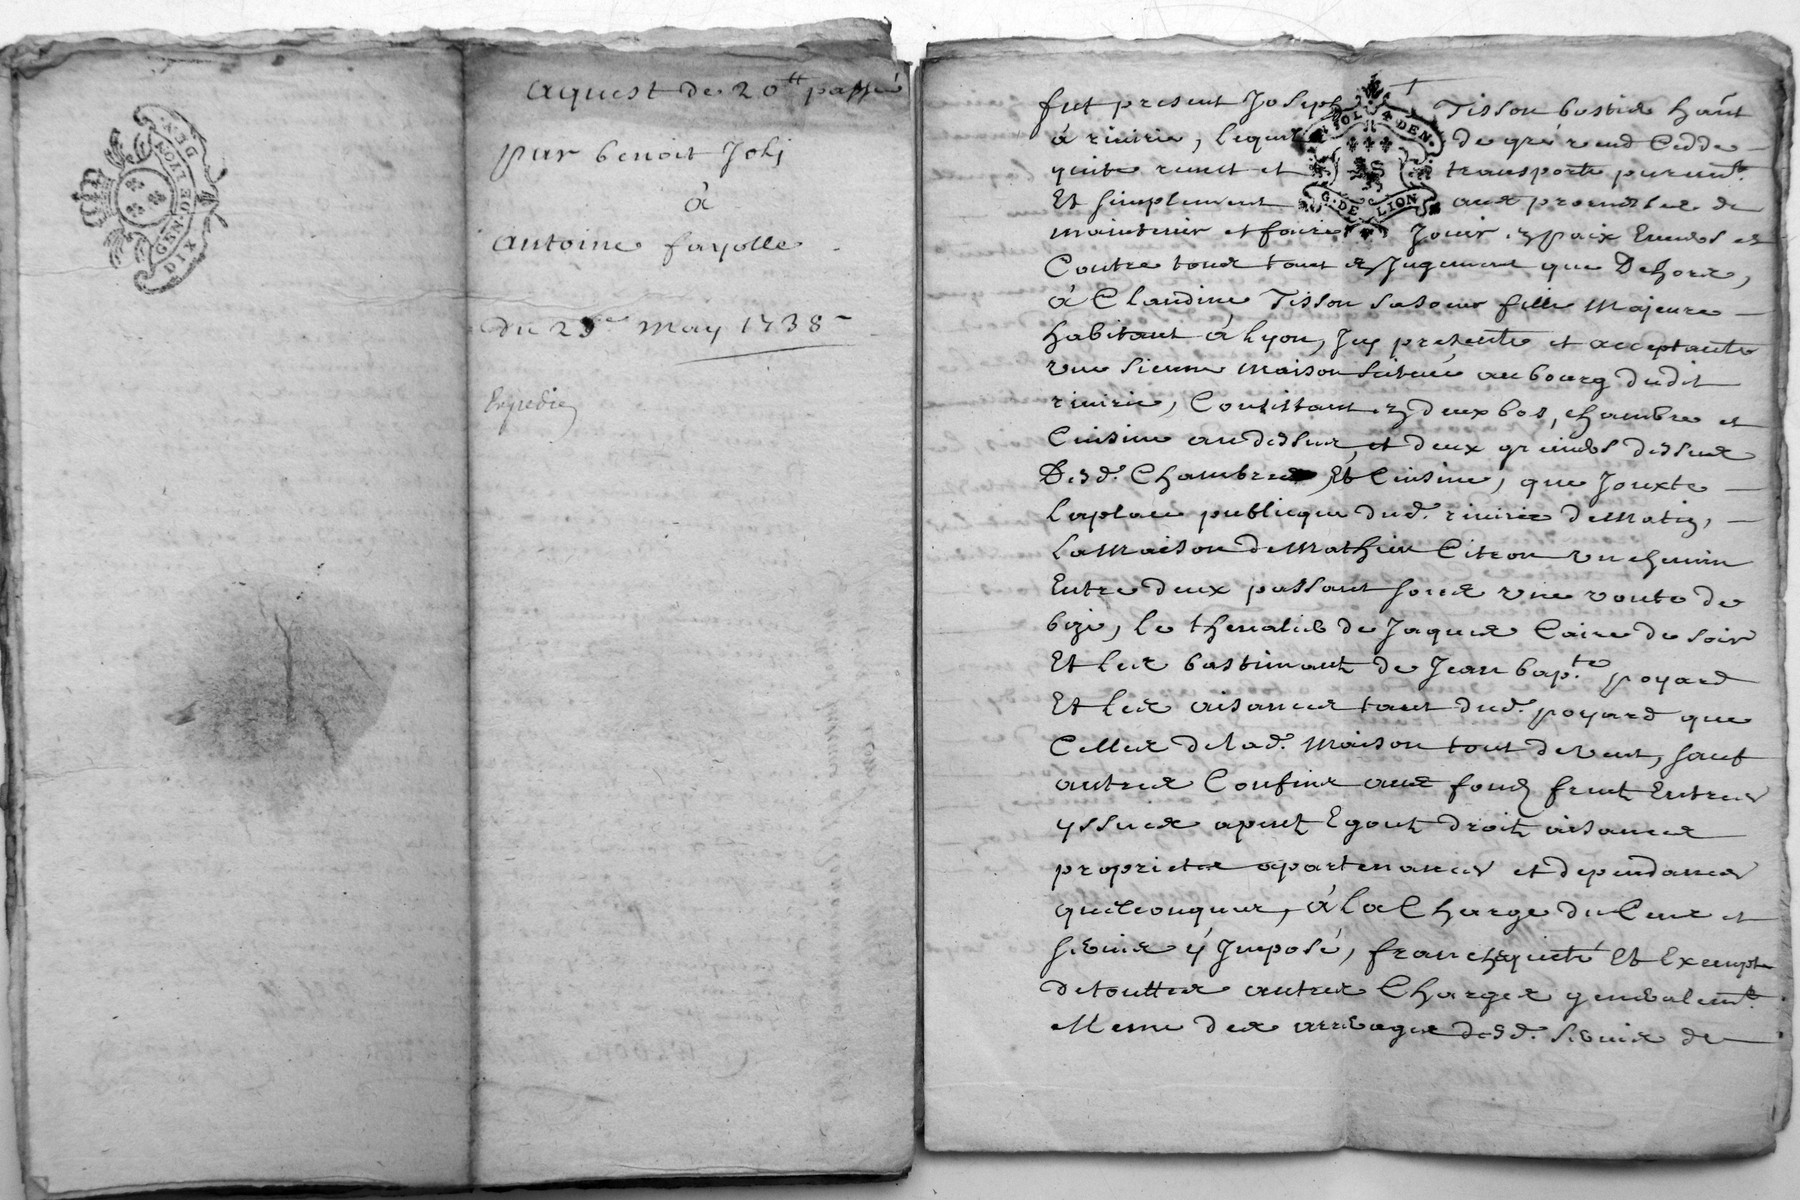 aquest de 20tt passé
par benoit Joly
à
antoine fayolle
du 25e may 1738
Expedié
GEN DIX
fut present Joseph Tisson bastier habt
à riuirie, lequel de gré vend Cedde
quite remet et transporte puremt
Et simplement auec promesse de
maintenir et faire Jouir en paix Enuers et
Contre tous tant en Jugement que Dehors,
à Claudine Tisson sa soeur fille Majeure
habitant à Lyon, Icy presente et acceptante
vne sienne maison scituée au bourg dudit
riuirie, Consistant en deux bas, chambre et
Cuisine au dessus, et deux greniers dessus
Desd. Chambres Et Cuisine, que Jouxte
la place publicque dud. riuirie de Matin,
la Maison de Mathieu Citron vn chemin
Entre deux passant sous vne voute de
bize, le chenalier de Jaques Caire de soir
Et les bastimants de Jean bapte poyard
Et les aisances tant dud. poyard que
Celles de lad. Maison tout de vent, sauf
autres Confins auec fonds fruits Entrées
yssues apents Egouts droits aisances
proprietés apartenances et dependances
quelconques, à la Charge du Cens et
seruis y Imposé, franche quitte Et Exempte
de touttes autres Charges generalemt
Mesme des arrerages desd. seruis de
G. DE LION